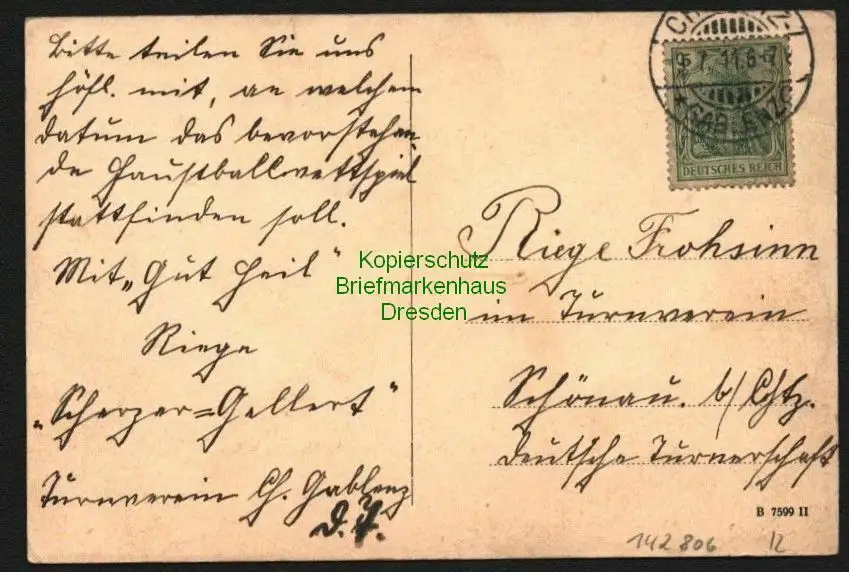 Bitte teilen Sie uns
höfl. mit, an welchem
Datum das bevorstehen-
de Faustballwettspiel
stattfinden soll.
Mit „Gut Heil"
Riege
„Scherzer=Gellert"
Turnverein Ch. Gablenz
D. O.
CHEMNITZ
9.7.11.6-7
* GABLENZ
DEUTSCHES REICH
Riege Frohsinn
im Turnverein
Schönau. b/Chtz.
Deutsche Turnerschaft
B 7599 II
142806
12
Kopierschutz
Briefmarkenhaus
Dresden